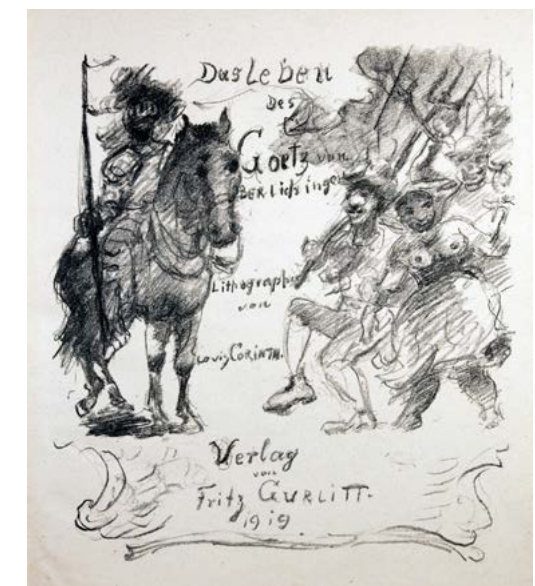 Das Leben
des
Goetz von
Berlichingen
Lithographien
von
Louis CORINTH.
Verlag
von
Fritz GURLITT.
1919